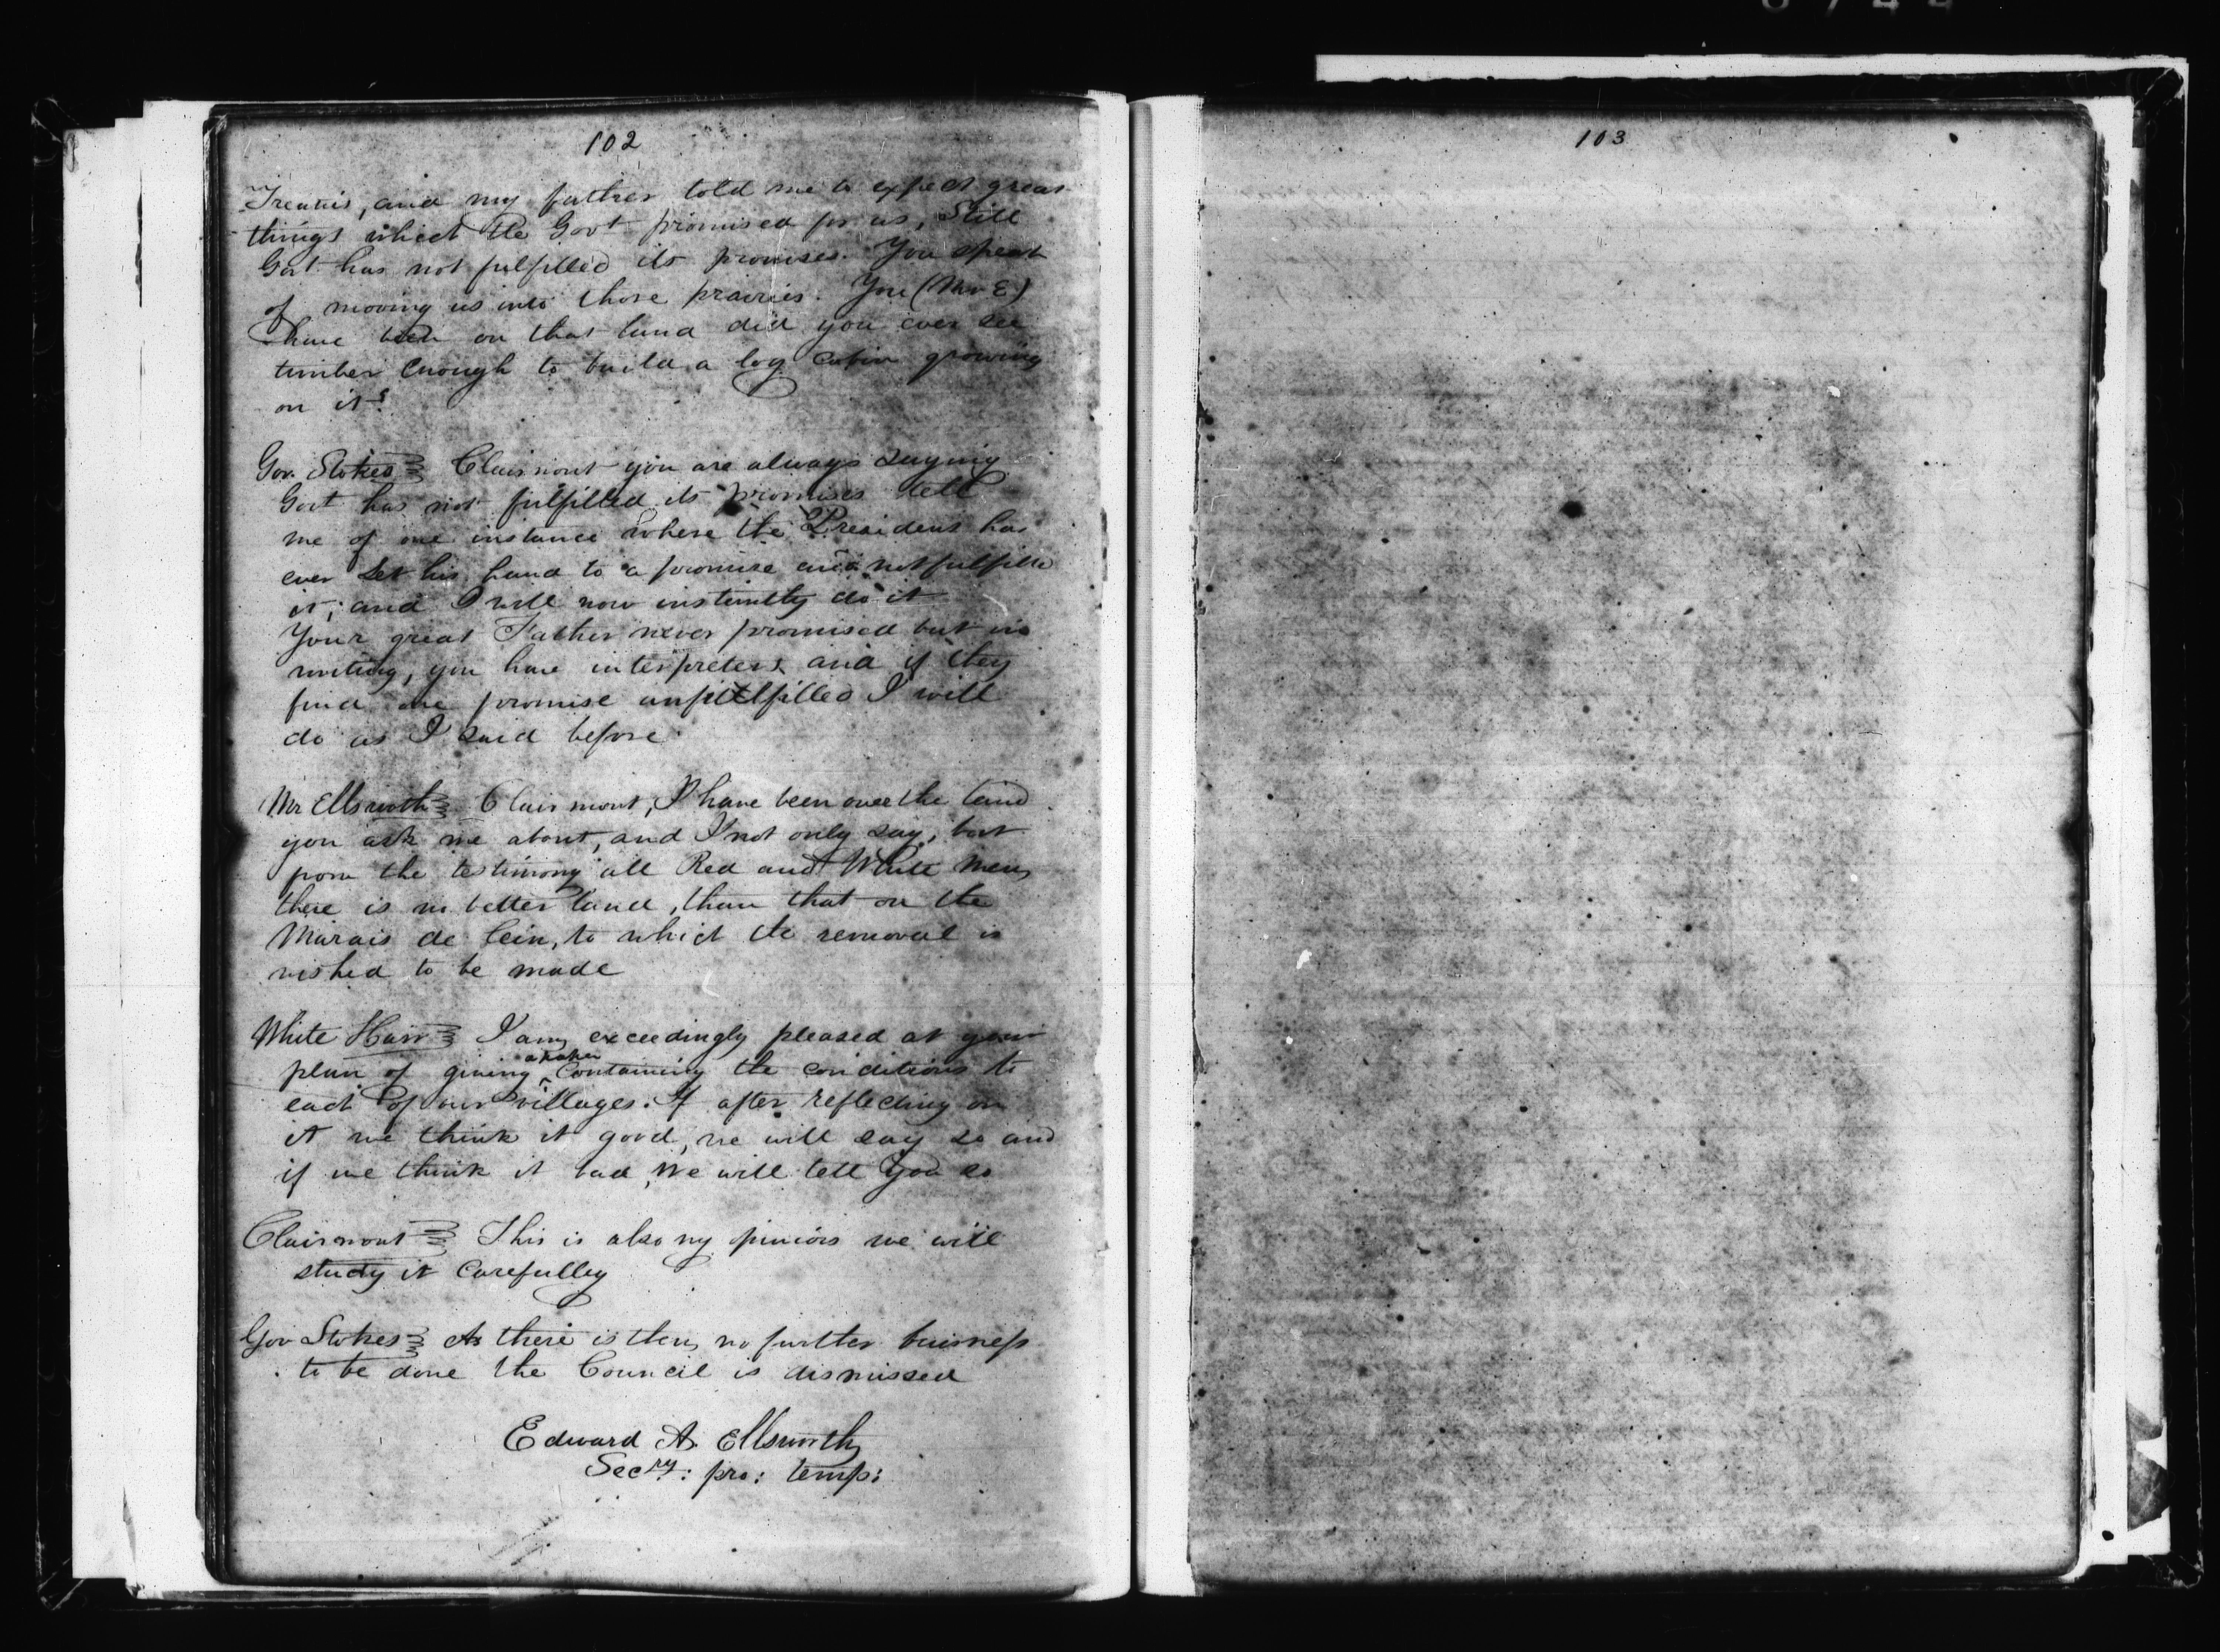 102
Treaties, and my father told me to expect great
things which the Govt promised for us, Still
Govt has not fulfilled its promises. You speak
of moving us into those prairies. You (Mr E)
have been on that land did you ever see
timber enough to build a log cabin growing
on it?
Gov. Stokes Clairmont you are always saying
Govt has not fulfilled its promises tell
me of one instance where the President has
ever set his hand to a promise and not fulfilled
it; and I will now instantly do it
Your great Father never promised but in
writing, you have interpreters and if they
find one promise unfullfilled I will
do as I said before
Mr Ellsworth Clairmont, I have been over the land
you ask me about, and I not only say, but
from the testimony all Red and White men,
there is no better land, than that on the
Marais de Cein, to which the removal is
wished to be made
White Hair I am exceedingly pleased at your
plan of giving a paper containing the conditions to
each of our villages. If after reflecting on
it we think it good, we will say so and
if we think it bad, we will tell you so
Clairmont This is also my opinion we will
study it carefully
Gov Stokes As there is then no further buisness
to be done the Council is dismissed
Edward A. Ellsworth
Secry: pro: temp:
103